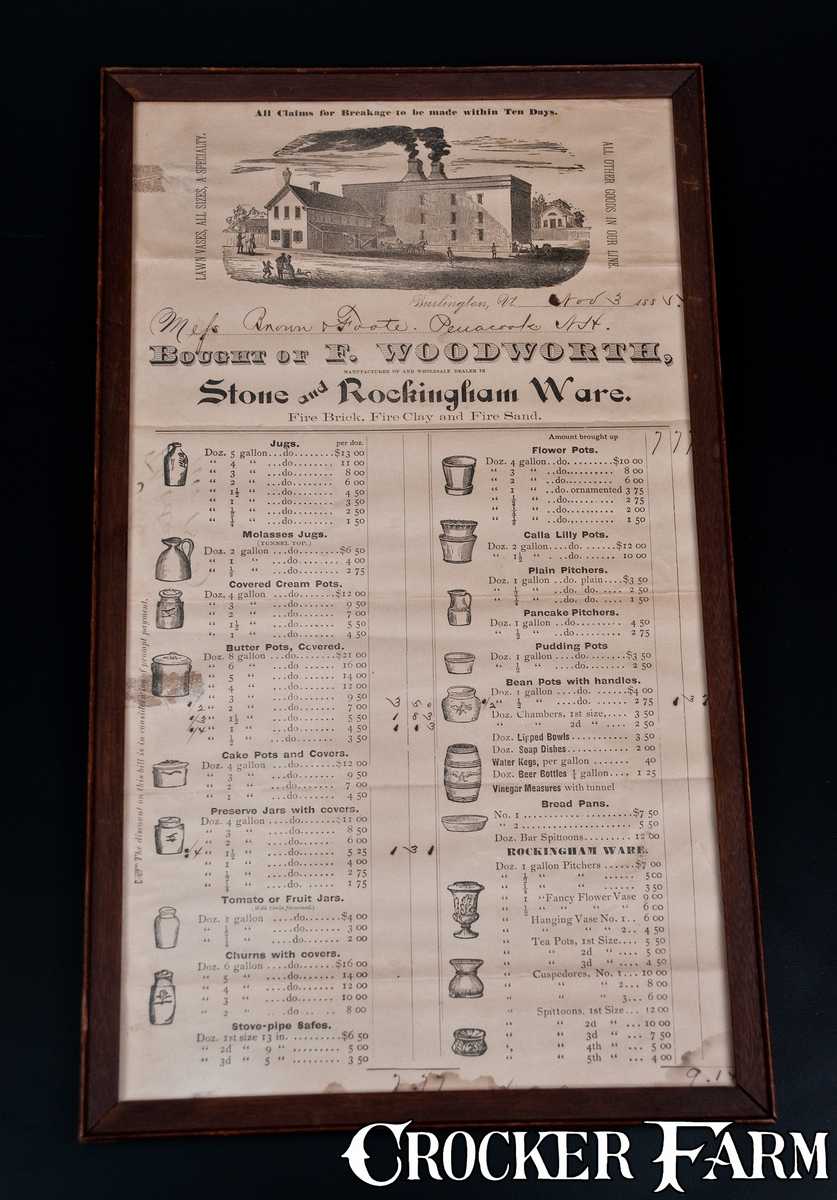 All Claims for Breakage to be made within Ten Days.
LAWN VASES, ALL SIZES, A SPECIALTY.
ALL OTHER GOODS IN OUR LINE.
Burlington, Vt Nov 3 1885.
Mess Brown & Foote. Penacook N.H.
BOUGHT OF F. WOODWORTH,
MANUFACTURER OF AND WHOLESALE DEALER IN
Stone and Rockingham Ware.
Fire Brick, Fire Clay and Fire Sand.
Jugs. per doz.
Doz. 5 gallon...do........$13 00
" 4 " ...do........ 11 00
" 3 " ...do........ 8 00
" 2 " ...do........ 6 00
" 1½ " ...do........ 4 50
" 1 " ...do........ 3 50
" ½ " ...do........ 2 50
" ¼ " ...do........ 1 50
Molasses Jugs.
(TUNNEL TOP.)
Doz. 2 gallon....do........$6 50
" 1 " ...do........ 4 00
" ½ " ...do........ 2 75
Covered Cream Pots.
Doz. 4 gallon ...do.......$12 00
" 3 " ...do........ 9 50
" 2 " ...do........ 7 00
" 1½ " ...do........ 5 50
" 1 " ...do........ 4 50
Butter Pots, Covered.
Doz. 8 gallon ...do.......$21 00
" 6 " ...do....... 16 00
" 5 " ...do....... 14 00
" 4 " ...do....... 12 00
" 3 " ...do....... 9 50
1/2 " 2 " ...do....... 7 00 3 50
1/3 " 1½ " ...do....... 5 50 1 83
1/4 " 1 " ...do....... 4 50 1 13
" ½ " ...do....... 3 50
Cake Pots and Covers.
Doz. 4 gallon ...do.......$12 00
" 3 " ...do........ 9 50
" 2 " ...do........ 7 00
" 1 " ...do........ 4 50
Preserve Jars with covers.
Doz. 4 gallon ....do.......$11 00
" 3 " ....do........ 8 50
" 2 " ....do........ 6 00
1/4 " 1½ " ....do........ 5 25 1 31
" 1 " ....do........ 4 00
" ½ " ....do........ 2 75
" ¼ " ....do........ 1 75
Tomato or Fruit Jars.
Doz. 1 gallon ....do.......$4 00
" ½ " ....do........ 3 00
" ¼ " ....do........ 2 00
Churns with covers.
Doz. 6 gallon ....do.......$16 00
" 5 " ....do....... 14 00
" 4 " ....do....... 12 00
" 3 " ....do....... 10 00
" 2 " ....do....... 8 00
Stove-pipe Safes.
Doz. 1st size 13 in. .........$6 50
" 2d " 9 " .......... 5 00
" 3d " 5 " .......... 3 50
7.77
The discount on this bill is in consideration of prompt payment.
Amount brought up 7 77
Flower Pots.
Doz. 4 gallon..do. ........$10 00
" 3 " ..do. ........ 8 00
" 2 " ..do. ........ 6 00
" 1 " ..do. ornamented 3 75
" ½ " ..do.......... 2 75
" ¼ " ..do.......... 2 00
" ..do.......... 1 50
Calla Lilly Pots.
Doz. 2 gallon....do. .......$12 00
" 1½ " ....do. ....... 10 00
Plain Pitchers.
Doz. 1 gallon ..do. plain....$3 50
" ½ " ..do. do. .... 2 50
" ¼ " ..do. do. .... 1 50
Pancake Pitchers.
Doz. 1 gallon ..do. ......... 4 50
" ½ " ..do. ......... 2 75
Pudding Pots
Doz. 1 gallon ...do. ........$3 50
" ½ " ...do. ........ 2 50
Bean Pots with handles.
Doz. 1 gallon ....do. .......$4 00
1/2 " ½ " ....do. ....... 2 75 1 37
Doz. Chambers, 1st size,.... 3 50
" " 2d " .... 2 50
Doz. Lipped Bowls........... 3 50
Doz. Soap Dishes........... 2 00
Water Kegs, per gallon ....... 40
Doz. Beer Bottles ½ gallon.... 1 25
Vinegar Measures with tunnel
Bread Pans.
No. 1 ......................$7 50
" 2...................... 5 50
Doz. Bar Spittoons......... 12 00
ROCKINGHAM WARE.
Doz. 1 gallon Pitchers ......$7 00
" ½ " " ...... 5 00
" ¼ " " ...... 3 50
" 1 " Fancy Flower Vase 9 00
" ½ " " " " 6 00
" Hanging Vase No. 1.. 6 00
" " " 2.. 4 50
" Tea Pots, 1st Size.... 5 50
" " 2d " .... 5 00
" " 3d " .... 4 50
" Cuspedores, No. 1...10 00
" " " 2... 8 00
" " 3... 6 00
" Spittoons, 1st Size... 12 00
" " 2d " ...10 00
" " 3d " ... 7 50
" " 4th " ... 5 00
" " 5th " ... 4 00
CROCKER FARM